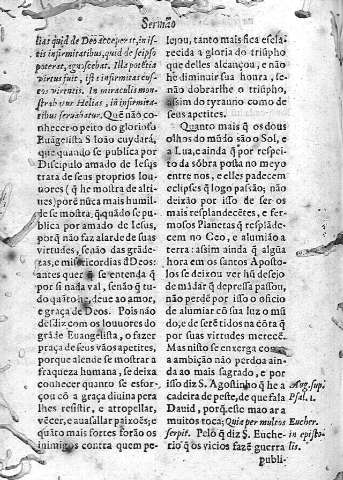 Sermão
lias quid de Deo acceperit, in is-
tis infirmitatibus, quid de seipso
poterat, agnoscebat. Illa potētia
virtus fuit, ista infirmitas cus-
tos virtutis. In miraculis mon-
strabatur Helias, in infirmita-
tibus servabatur. Que não co-
nhecer o peito do glorioso
Euāgelista S. Ioão cuydará,
que quando se publica por
Discipulo amado de Iesus,
trata de seus proprios lou-
vores (q̃ he mostra de alti-
ues) porē nũca mais humil-
de se mostra, q̃ quādo se pu-
blica por amado de Iesus,
porq̃ não faz alarde de suas
virtudes, senão das grāde-
zas, e misericordias d̃ Deos:
antes quer se entenda q̃
por si nada val, senão q̃ tu-
do quāto he, deve ao amor,
e graça de Deos. Pois não
desdiz com os louuores do
grāde Euangelista, o fazer
praça de seus vãos apetites,
porque alende se mostrar a
fraqueza humana, se deixa
conhecer quanto se esfor-
çou cō a graça divina pera
lhes resistir, e atropellar,
vēcer, e auasallar paixoēs; e
quāto mais fortes forão os
inimigos contra quem pe-
lejou, tanto mais fica escla-
recida a gloria do triūpho
que delles alcançou, e não
he diminuir sua honra, se-
não dobrarlhe o triūpho,
assim do tyranno como de
seus apetites.
Quanto mais q̃ os dous
olhos do mūdo são o Sol, e
a Lua, e ainda q̃ por respei-
to da sōbra posta no meyo
entre nos, e elles padecem
eclipses q̃ logo passão; não
deixão por isso de ser os
mais resplandecētes, e fer-
mosos Planetas q̃ resplāde-
cem no Ceo, e alumião a
terra: assim ainda q̃ algūa
hora em os santos Aposto-
los se deixou ver hū desejo
de mādar q̃ depressa passou,
não perdē por isso o oficio
de alumiar cō sua luz o mū-
do, e de serē tidos na cōta q̃
por suas virtudes merecē.
Mas nisto se enxerga como
a ambição não perdoa ainda
ao mais sagrado, e por
isso diz S. Agostinho q̃ he a
cadeira de peste, de que fala
Dauid, porq̃ esse mao ar a
muitos toca; Quia per multos
serpit. Pelo q̃ diz S. Euche-
rio q̃ os vicios fazē guerra
publi-
Aug. sup.
Psal. 1.
Eucher.
in episto-
lis.